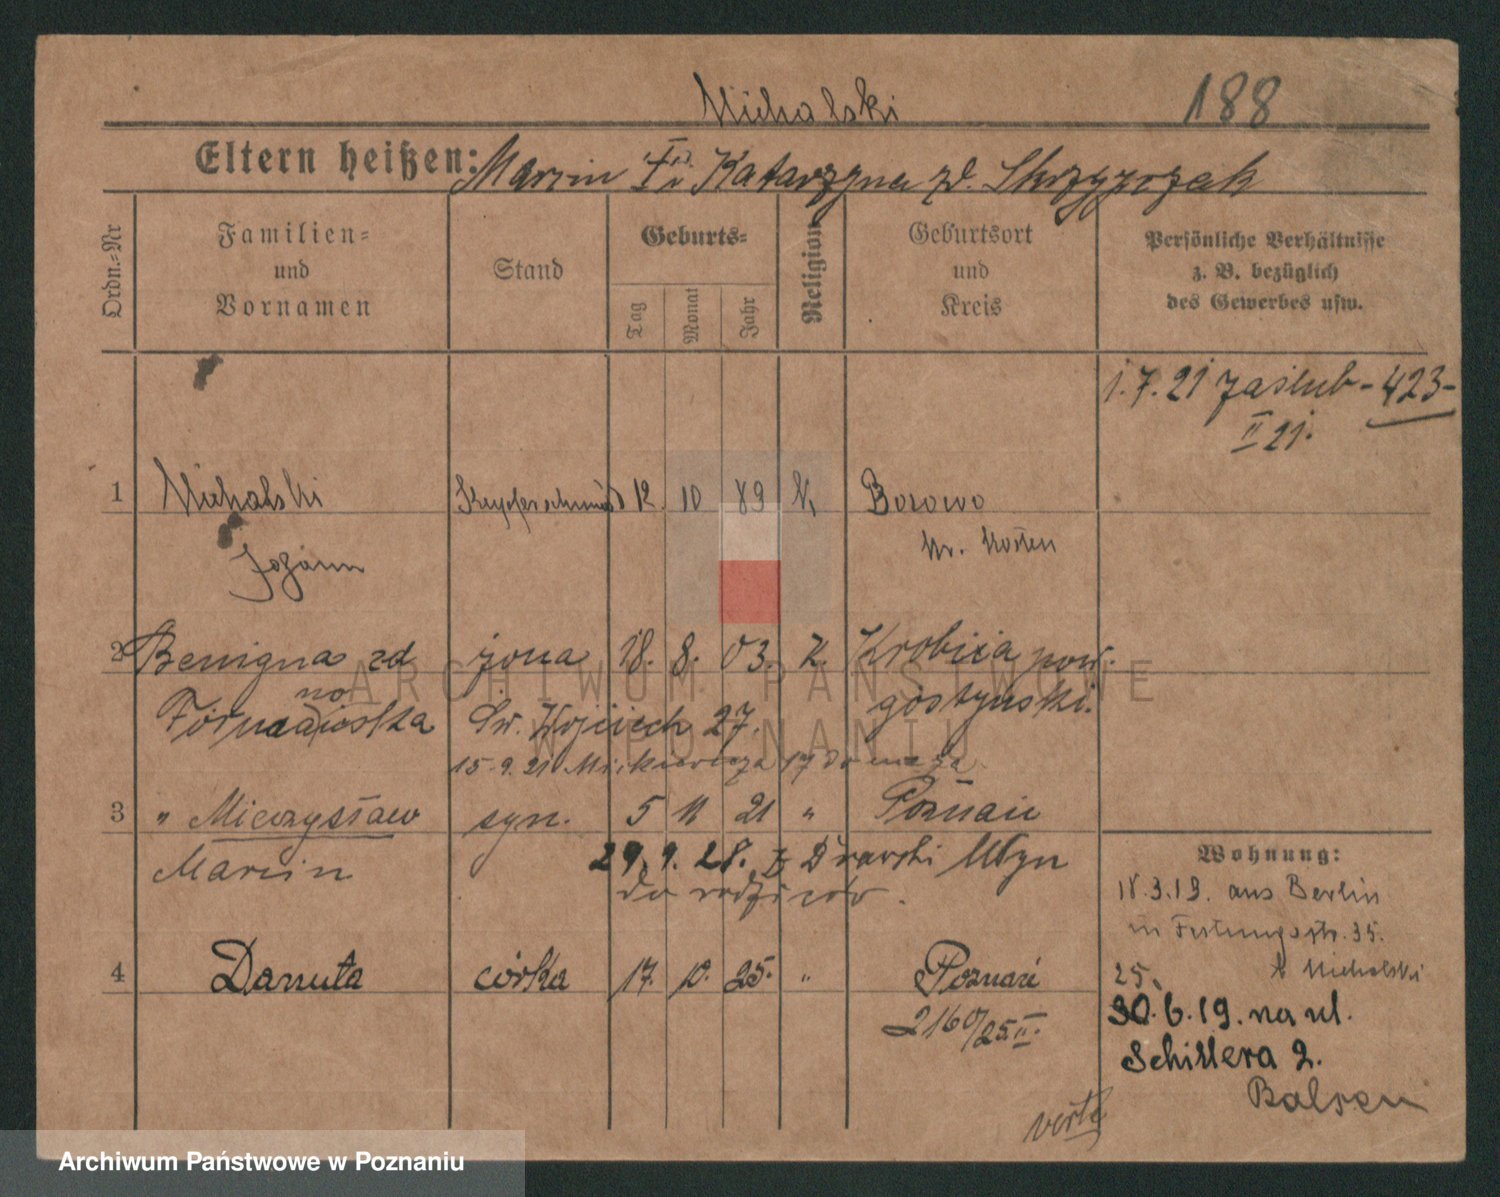 Michalski
188
Eltern heißen: Marcin i Katarzyna zd. Skrzypczak
Ordn.-Nr
Familien-
und
Vornamen
Stand
Geburts-
Tag
Monat
Jahr
Religion
Geburtsort
und
Kreis
Persönliche Verhältnisse
z. B. bezüglich
des Gewerbes usw.
1.7.21 zaślub - 423 -
II 21.
1 Michalski Kupferschmied 12. 10 89 k. Borowo
Kr. Kosten
2 Benigna zd żona 18. 8. 03. k. Krobia pow.
gostynski.
Św. Wojciech 27.
15.9.21 Mickiewicza 17 do męża
3 " Mieczysław syn. 5 11 21 " Poznań
Marcin
29. 9. 28. z Młyn
do rodziców.
4 Danuta córka 17. 10. 25. " Poznań
2160/25.II.
verte
Wohnung:
18.3.19. aus Berlin
in Festungsstr. 35.
b Michalski
25.
30.6.19. na ul.
Schillera 2.
ARCHIWUM PAŃSTWOWE
W POZNANIU
Archiwum Państwowe w Poznaniu